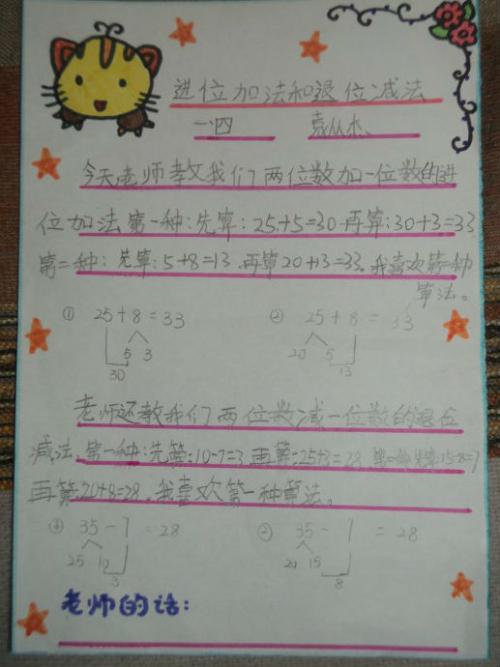 进位加法和退位减法
一.四 袁从木、
今天老师教我们两位数加一位数的进
位加法第一种:先算:25+5=30.再算:30+3=33
第二种:先算:5+8=13.再算20+13=33。我喜欢第一种
算法。
① 25+8=33 ② 25+8=33
5 3 20 5
30 13
老师还教我们两位数减一位数的退位
减法,第一种:先算:10-7=3.再算:25+3=28 第二种先算:15-8=7
再算:20+8=28.我喜欢第一种算法。
① 35-7=28 ② 35-7=28
25 10 20 15
3 8
老师的话: